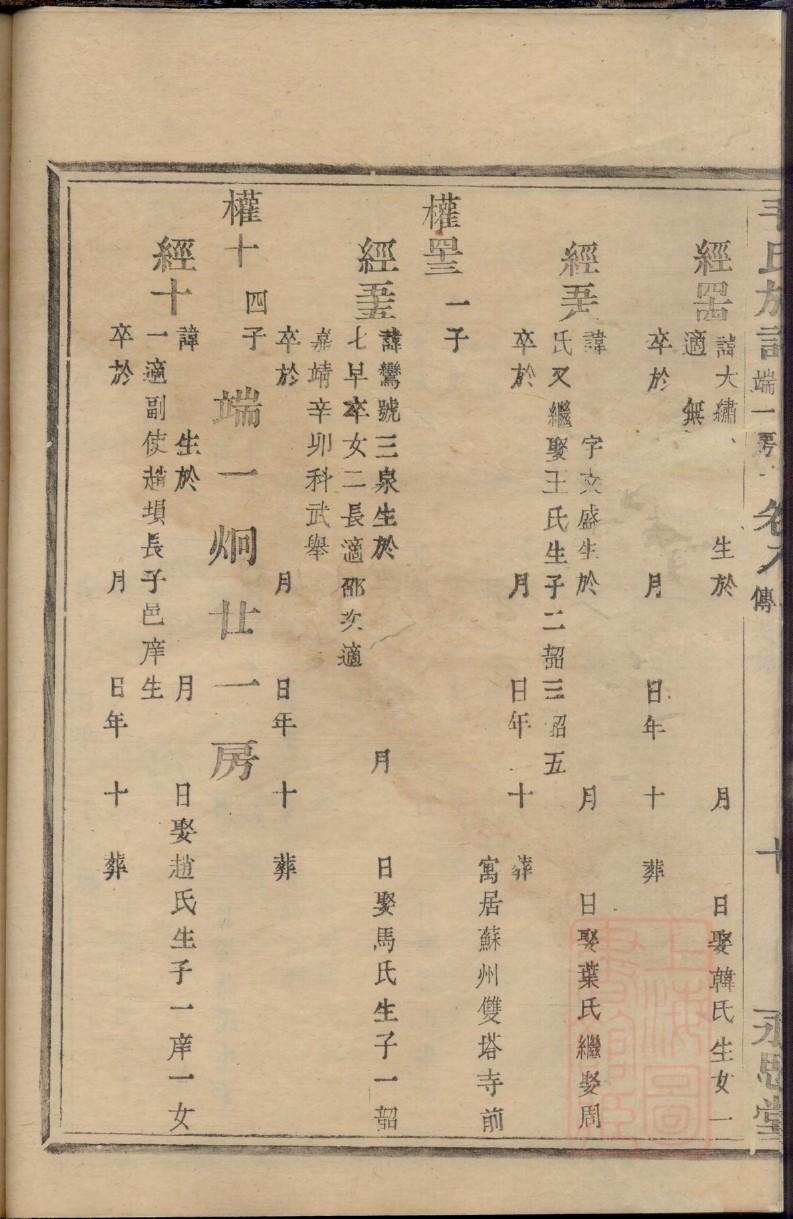 毛氏族譜 端一房 卷八 傳 十 永思堂
經罢 諱大繡 生於 月 日娶韓氏生女一
適 無
卒於 月 日年 十 葬
經吾 諱 字文盛生於 月 日娶葉氏繼娶周
氏又繼娶王氏生子二韶三韶五
卒於 月 日年 十 葬
寓居蘇州雙塔寺前
權 一子
經 諱鸞號三泉生於 月 日娶馬氏生子一韶
七早卒女二長適邵次適
嘉靖辛卯科武舉
卒於 月 日年 十 葬
權十 四子 端一炯廿一房
經十 諱 生於 月 日娶趙氏生子一庠一女
一適副使趙塤長子邑庠生
卒於 月 日年 十 葬
上海圖書館臧